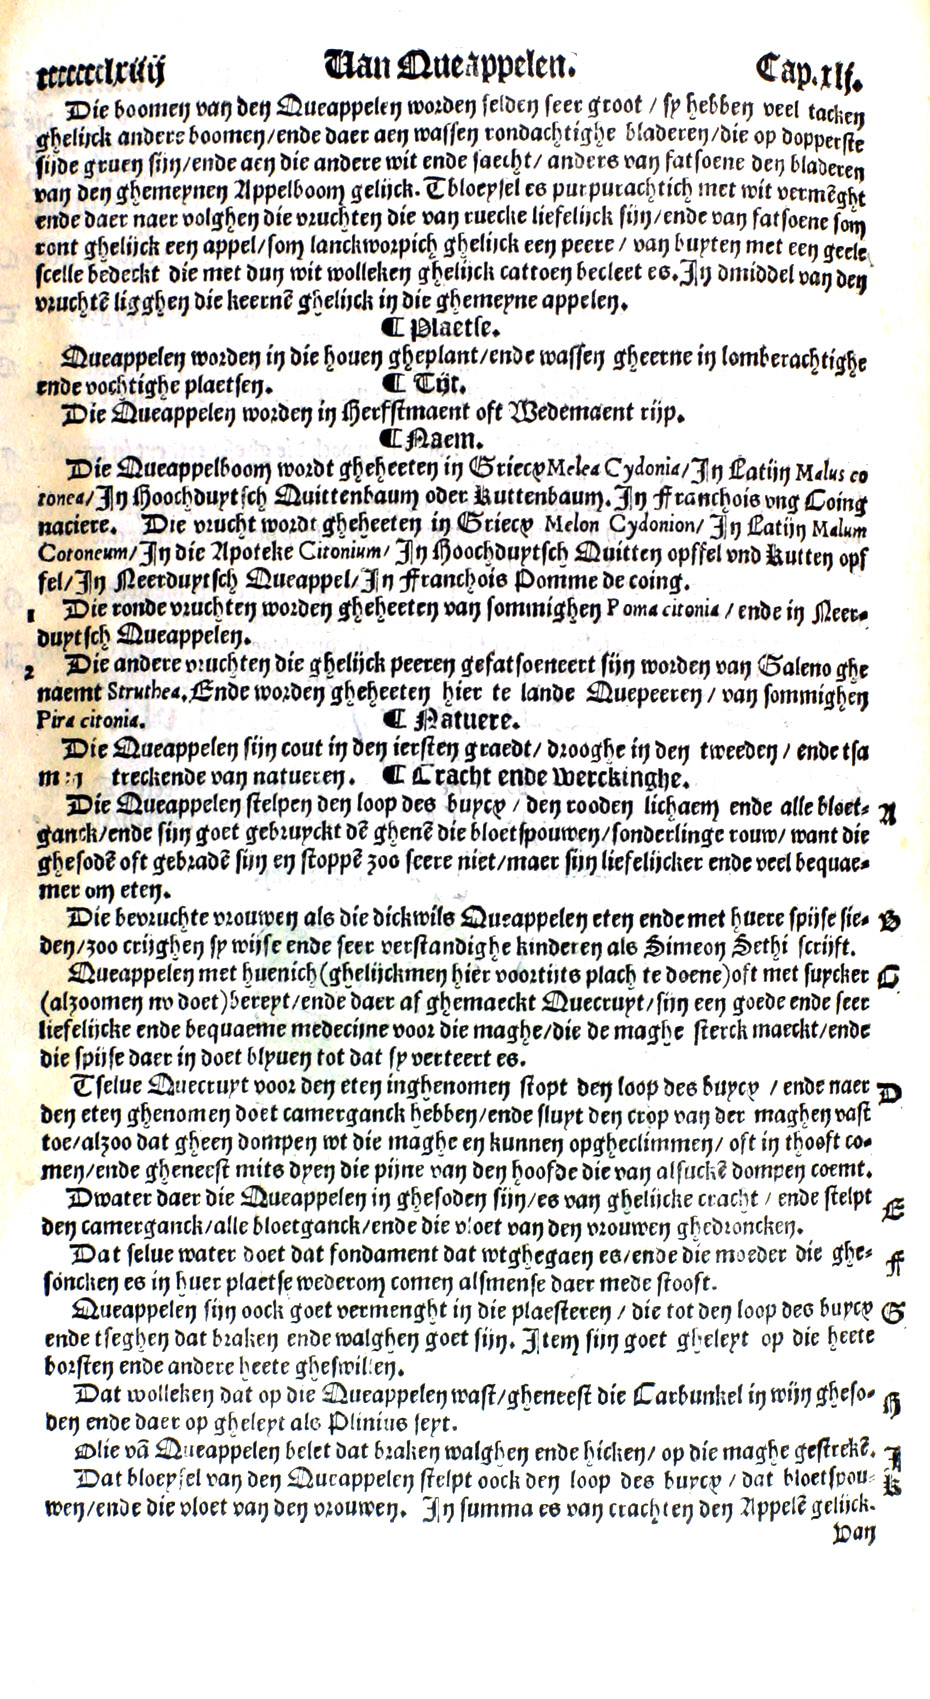 ccccccclxiiij Van Queappelen. Cap.xlj.
Die boomen van den Queappelen worden selden seer groot / sy hebben veel tacken
ghelijck andere boomen/ende daer aen wassen rondachtighe bladeren/die op dopperste
sijde gruen sijn/ende aen die andere wit ende saecht/ anders van fatsoene den bladeren
van den ghemeynen Appelboom gelijck. Tbloeysel es purpurachtich met wit vermēght
ende daer naer volghen die vruchten die van ruecke liefelijck sijn/ende van fatsoene som
ront ghelijck een appel/som lanckworpich ghelijck een peere / van buyten met een geele
scelle bedeckt die met dun wit wolleken ghelijck cattoen becleet es. In dmiddel van den
vruchtē ligghen die keernē ghelijck in die ghemeyne appelen.
¶ Plaetse.
Queappelen worden in die houen gheplant/ende wassen gheerne in lomberachtighe
ende vochtighe plaetsen. ¶ Tijt.
Die Queappelen worden in Herfstmaent oft Wedemaent rijp.
¶ Naem.
Die Queappelboom wordt gheheeten in Griecx Melea Cydonia/In Latijn Malus co
tonea/In Hoochduytsch Quittenbaum oder Kuttenbaum. In Franchois vng Coing
naciere. Die vrucht wordt gheheeten in Griecx Melon Cydonion/ In Latijn Malum
Cotoneum/In die Apoteke Citonium/ In Hoochduytsch Quitten opffel vnd Kutten opf
fel/In Neerduytsch Queappel/In Franchois Pomme de coing.
1 Die ronde vruchten worden gheheeten van sommighen Poma citonia / ende in Neer-
duytsch Queappelen.
2 Die andere vruchten die ghelijck peeren gefatsoeneert sijn worden van Galeno ghe
naemt Struthea. Ende worden gheheeten hier te lande Quepeeren / van sommighen
Pira citonia. ¶ Natuere.
Die Queappelen sijn cout in den iersten graedt/ drooghe in den tweeden / ende tsa
men treckende van natueren. ¶ Cracht ende Werckinghe.
Die Queappelen stelpen den loop des buycx / den rooden lichaem ende alle bloet- A
ganck/ende sijn goet gebruyckt dē ghenē die bloetspouwen/sonderlinge rouw/ want die
ghesodē oft gebradē sijn en stoppē zoo seere niet/maer sijn liefelijcker ende veel bequae-
mer om eten.
Die bevruchte vrouwen als die dickwils Queappelen eten ende met huere spijse sie- B
den/zoo crijghen sy wijse ende seer verstandighe kinderen als Simeon Sethi scrijft.
Queappelen met huenich(ghelijckmen hier voortijts plach te doene)oft met suycker C
(alzoomen nv doet)bereyt/ende daer af ghemaeckt Quecruyt/sijn een goede ende seer
liefelijcke ende bequaeme medecijne voor die maghe/die de maghe sterck maeckt/ende
die spijse daer in doet blyuen tot dat sy verteert es.
Tselue Quecruyt voor den eten inghenomen stopt den loop des buycx / ende naer D
den eten ghenomen doet camerganck hebben/ende sluyt den crop van der maghen vast
toe/alzoo dat gheen dompen wt die maghe en kunnen opgheclimmen/ oft in thooft co-
men/ende gheneest mits dyen die pijne van den hoofde die van alsuckē dompen coemt.
Dwater daer die Queappelen in ghesoden sijn/es van ghelijcke cracht / ende stelpt E
den camerganck/alle bloetganck/ende die vloet van den vrouwen ghedroncken.
Dat selue water doet dat fondament dat wtghegaen es/ende die moeder die ghe- F
soncken es in huer plaetse wederom comen alsmense daer mede stooft.
Queappelen sijn oock goet vermenght in die plaesteren / die tot den loop des buycx G
ende tseghen dat braken ende walghen goet sijn. Item sijn goet gheleyt op die heete
borsten ende andere heete gheswillen.
Dat wolleken dat op die Queappelen wast/gheneest die Carbunkel in wijn gheso- H
den ende daer op gheleyt als Plinius seyt.
Olie vā Queappelen belet dat braken walghen ende hicken/ op die maghe gestrekē. I
Dat bloeysel van den Queappelen stelpt oock den loop des buycx / dat bloetspou- K
wen/ende die vloet van den vrouwen. In summa es van crachten den Appelē gelijck.
Van